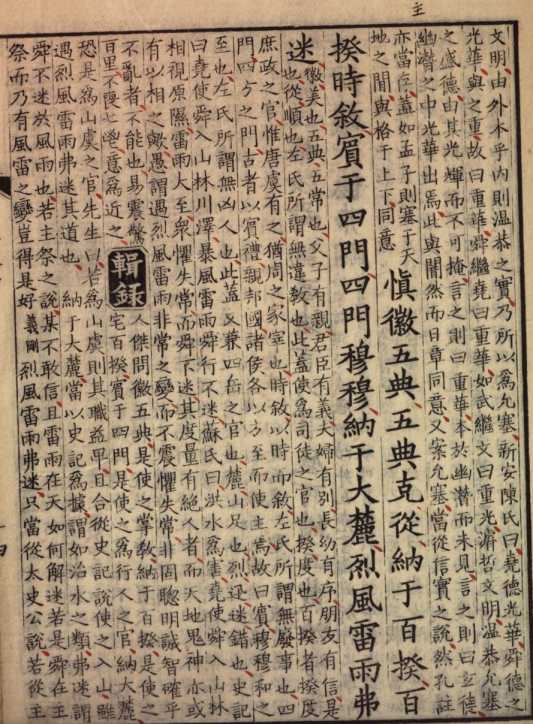 主
文明由外本乎内則温恭之實乃所以爲允塞新安陳氏曰堯德光華舜德之
光華與之重故曰重華舜繼堯曰重華如武繼文曰重光濬哲文明温恭允塞
之盛德由其光輝而不可掩言之則曰重華本於幽潛而未見言之則曰玄德
幽潛之中光華出焉此與闇然而日章同意又案允塞當從信實之說然孔註
亦當存蓋如孟子則塞于天
地之間與格于上下同意
慎徽五典五典克從納于百揆百
揆時敘賓于四門四門穆穆納于大麓烈風雷雨弗
迷
徽美也五典五常也父子有親君臣有義夫婦有别長幼有序朋友有信是
也從順也左氏所謂無違教也此蓋使爲司徒之官也揆度也百揆者揆度
庶政之官惟唐虞有之猶周之冢宰也時敘以時而敘左氏所謂無廢事也四
門四方之門古者以賓禮親邦國諸侯各以方至而使主焉故曰賓穆穆和之
至也左氏所謂無凶人也此蓋又兼四岳之官也麓山足也烈迅迷錯也史記
曰堯使舜入山林川澤暴風雷雨舜行不迷蘇氏曰洪水爲害堯使舜入山林
相視原隰雷雨大至衆懼失常而舜不迷其度量有絶人者而天地鬼神亦或
有以相之歟愚謂遇烈風雷雨非常之變而不震懼失常非固聰明誠智確乎
不亂者不能也易震驚
百里不喪匕鬯意爲近之
輯録
人傑問徽五典是使之掌教納于百揆是使之
宅百揆賓于四門是使之爲行人之官納大麓
恐是爲山虞之官先生曰若爲山虞則其職益卑且合從史記說使之入山雖
遇烈風雷雨弗迷其道也 納于大麓當以史記爲據謂如治水之類弗迷謂
舜不迷於風雨也若主祭之說某不敢信且雷雨在天如何解迷若是舜在主
祭而乃有風雷之變豈得是好義剛烈風雷雨弗迷只當從太史公說若從主